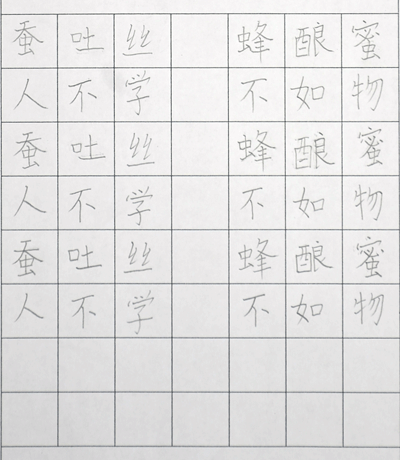 蚕吐丝 蜂酿蜜
人不学 不如物
蚕吐丝 蜂酿蜜
人不学 不如物
蚕吐丝 蜂酿蜜
人不学 不如物